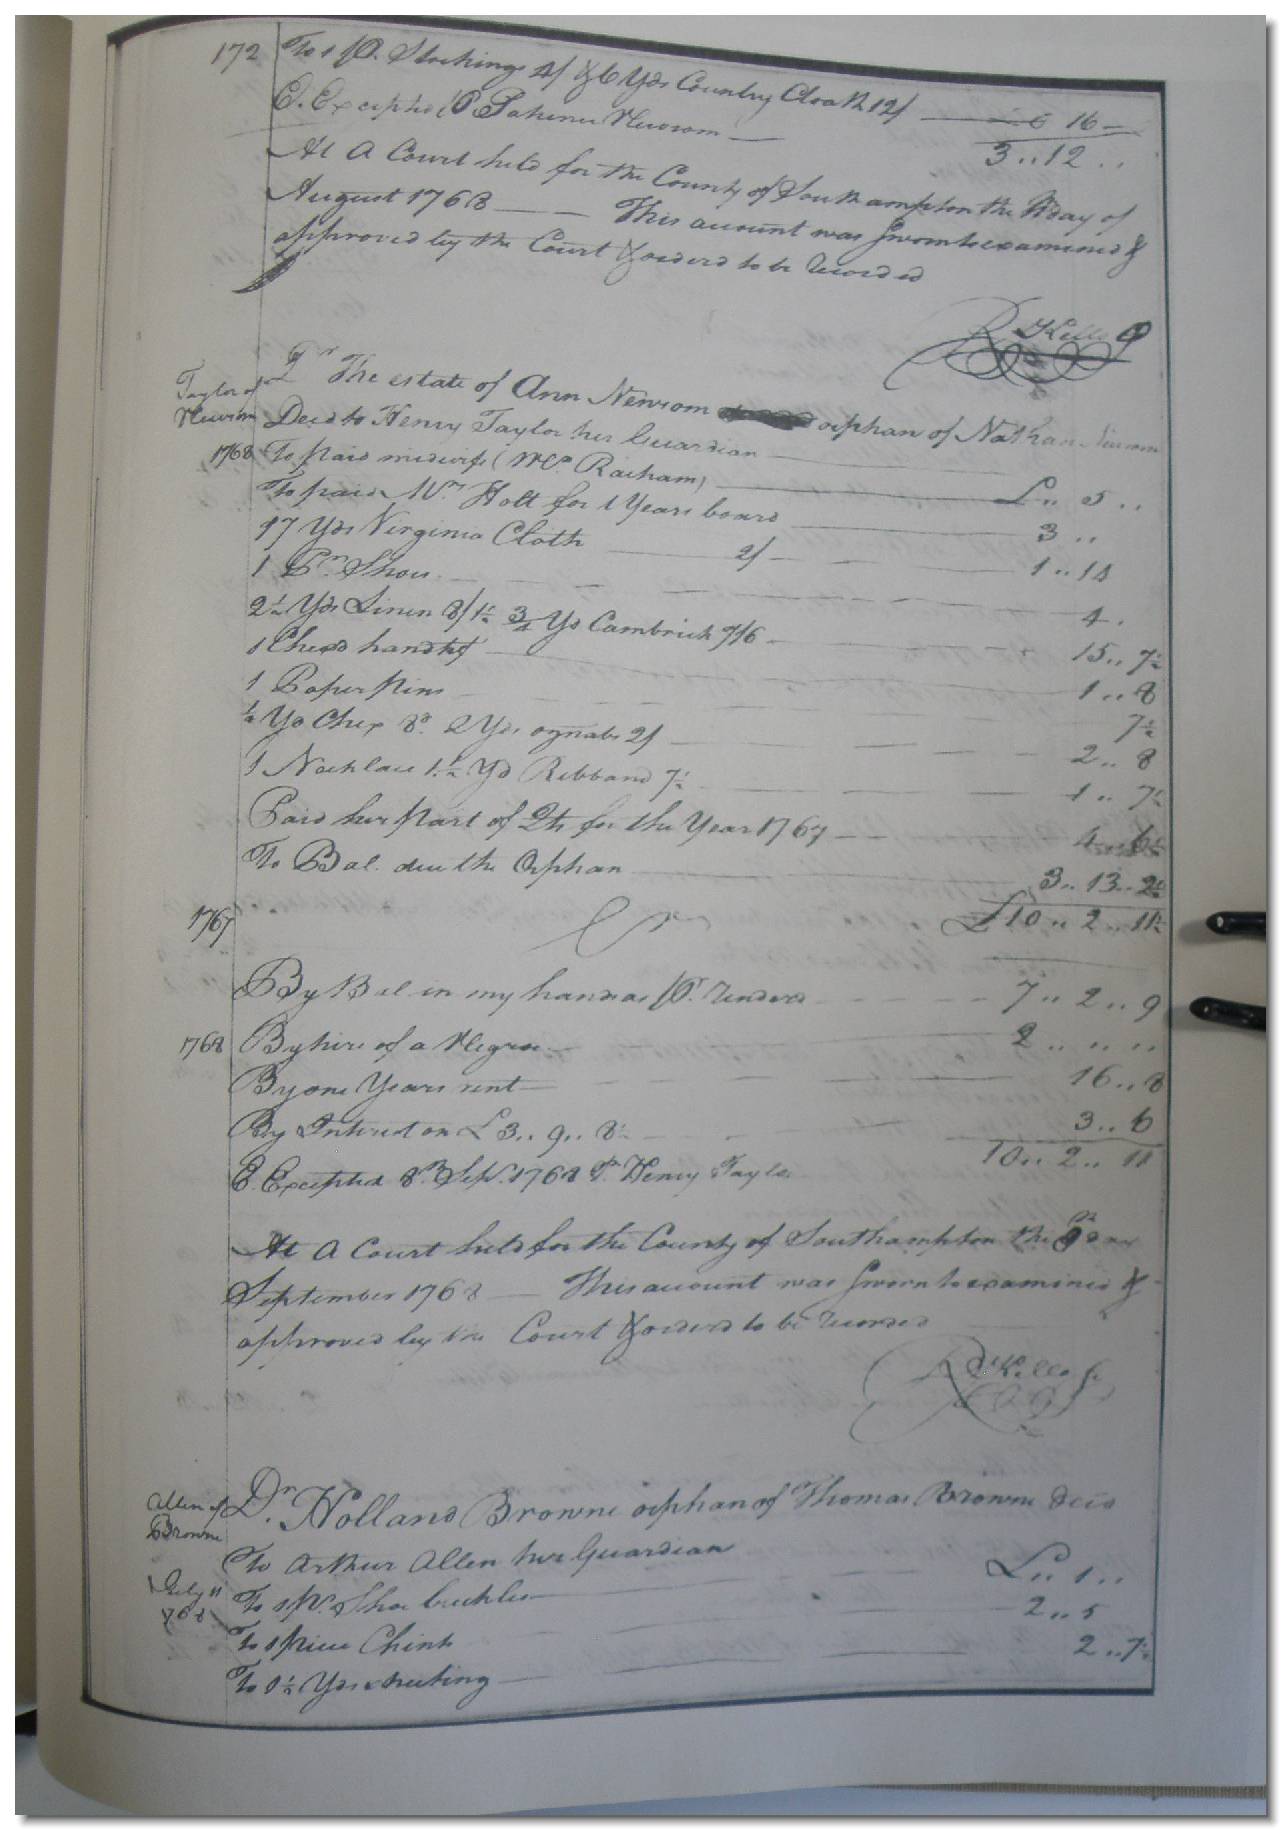 172
To 1 pr. Stockings 4/ & 6 Yds Country Cloath 12/ 16
E. Excepted Newsom 3 .. 12 ..
At A Court held for the County of Southampton the day of
August 1768 This account was Sworn to examined &
approved by the Court & orderd to be Recorded
R Kello
Taylor of
Newsom
Dr The estate of Ann Newsom orphan of Nathan Newsom
Decd to Henry Taylor her Guardian
1768 To paid midwife (Mrs. Racham) £ .. 5 ..
To paid Wm Holt for 1 Years board 3 ..
17 Yds Virginia Cloth 2/ 1 .. 14
1 Pr Shoes 4 .
2½ Yds Linen 3/1½ ¾ Yd Cambrick 9/6 15 .. 7½
1 Check handkf 1 .. 8
1 Paper pins 7½
Yd Chex 8d. 2 Yds oznabs 2/ 2 .. 8
1 Necklace 1.½ Yd Ribband 7½ 1 .. 7½
Paid her part of Qts for the Year 1767 4 .. 6½
To Bal. due the Orphan 3 .. 13 .. 2½
1767 Cr £10 .. 2 .. 11½
By Bal in my hands as pr. Renderd 7 .. 2 .. 9
1768 By hire of a Negroe 2 .. .. ..
By one Years rent 16 .. 8
By Interest on £3 .. 9 .. 8½ 3 .. 6
E. Excepted 8th Sepr. 1768 Pr. Henry Taylor 10 .. 2 .. 11
At A Court held for the County of Southampton the 8th day
September 1768 This account was Sworn to examined &
approved by the Court & orderd to be Recorded
R Kello
Allen of
Browne
Dr. Holland Browne orphan of Thomas Browne decd
To Arthur Allen her Guardian
July 11
1768
To 1 pr. Shoe buckles £ .. 1 ..
To 1 piece Chints 2 .. 5
To 1½ Yds sheeting 2 .. 7½